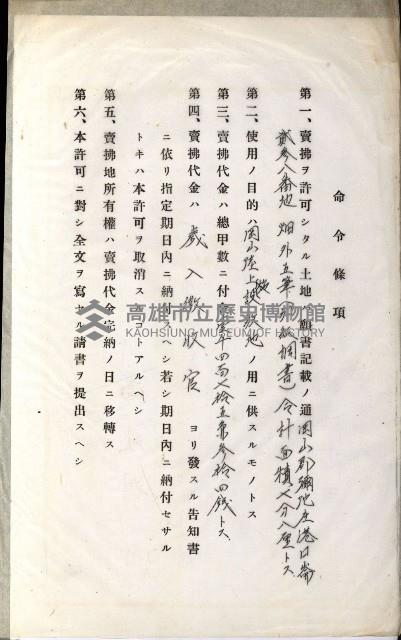 命令條項
第一、賣拂ヲ許可シタル土地ハ願書記載ノ通岡山郡彌陀庄港口崙
貳參八番地畑外五筆合計面積七分八厘トス
第二、使用ノ目的ハ岡山陸上ノ用ニ供スルモノトス
第三、賣拂代金ハ總甲數ニ付四百七拾五圓參拾四錢トス
第四、賣拂代金ハ歲入徵收官ヨリ發スル告知書
ニ依リ指定期日內ニ納付スヘシ若シ期日內ニ納付セサル
トキハ本許可ヲ取消スコトアルヘシ
第五、賣拂地所有權ハ賣拂代金完納ノ日ニ移轉ス
第六、本許可ニ對シ全文ヲ寫セル請書ヲ提出スヘシ
高雄市立歷史博物館
KAOHSIUNG MUSEUM OF HISTORY